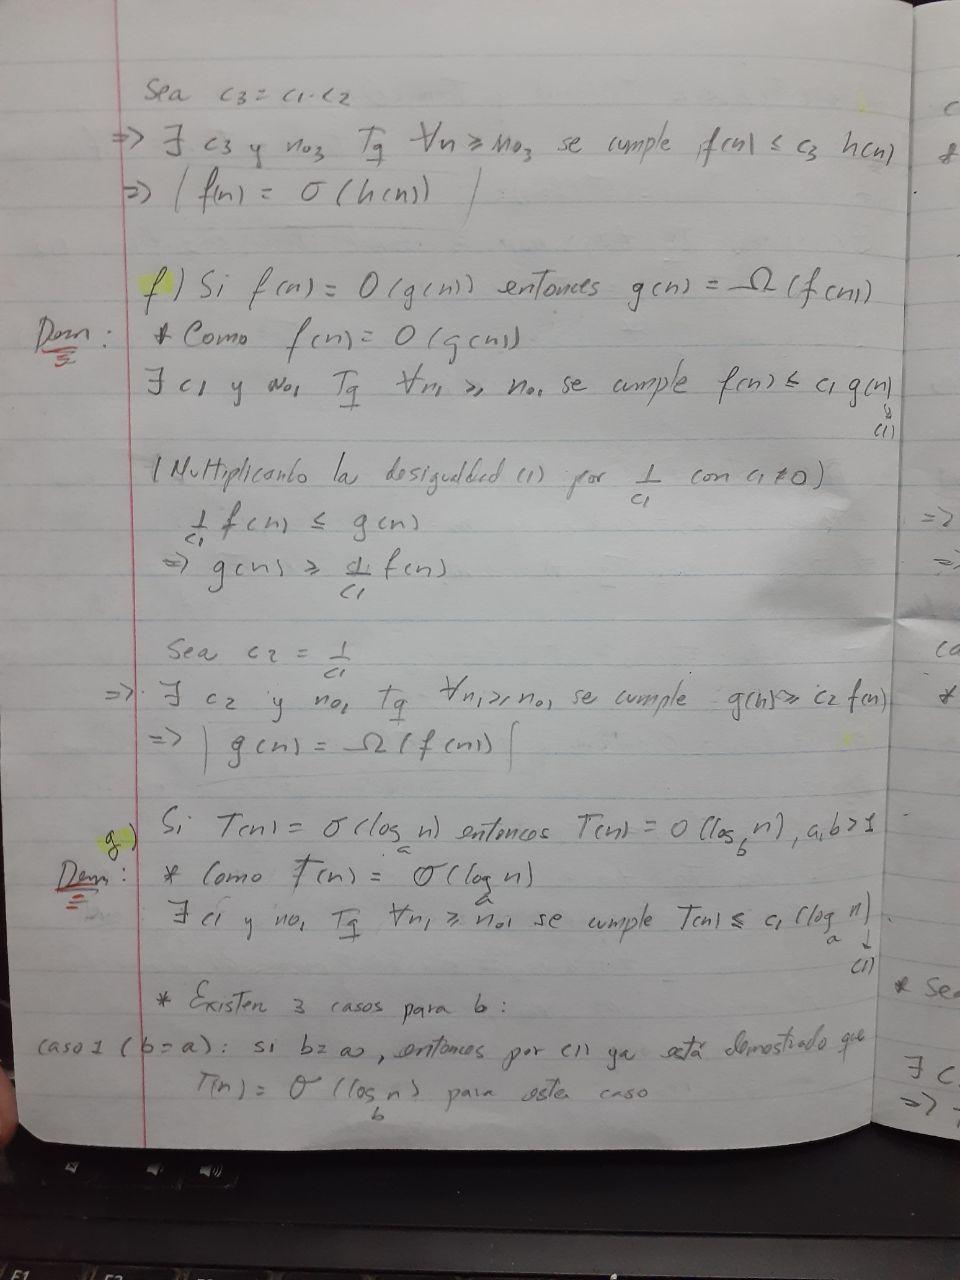 Sea c3 = c1·c2
=> ∃ c3 y no3 Tq ∀n ≥ no3 se cumple f(n) ≤ c3 h(n)
=> | f(n) = O(h(n)) |
f) Si f(n) = O(g(n)) entonces g(n) = Ω(f(n))
Dem: * Como f(n) = O(g(n))
∃ c1 y no1 Tq ∀n1 ≥ no1 se cumple f(n) ≤ c1 g(n)
(1)
(Multiplicanto la desigualdad (1) por 1/c1 con c1≠0)
1/c1 f(n) ≤ g(n)
=> g(n) ≥ 1/c1 f(n)
Sea c2 = 1/c1
=> ∃ c2 y no1 Tq ∀n1 ≥ no1 se cumple g(n) ≥ c2 f(n)
=> | g(n) = Ω(f(n)) |
g) Si T(n) = O(log_a n) entonces T(n) = O(log_b n), a,b>1
Dem: * Como T(n) = O(log_a n)
∃ c1 y no1 Tq ∀n1 ≥ no1 se cumple T(n) ≤ c1 (log_a n)
↓
(1)
* Existen 3 casos para b:
caso 1 (b=a): si b=a, entonces por (1) ya está demostrado que
T(n) = O(log_b n) para este caso
* Sea
∃ c
=>